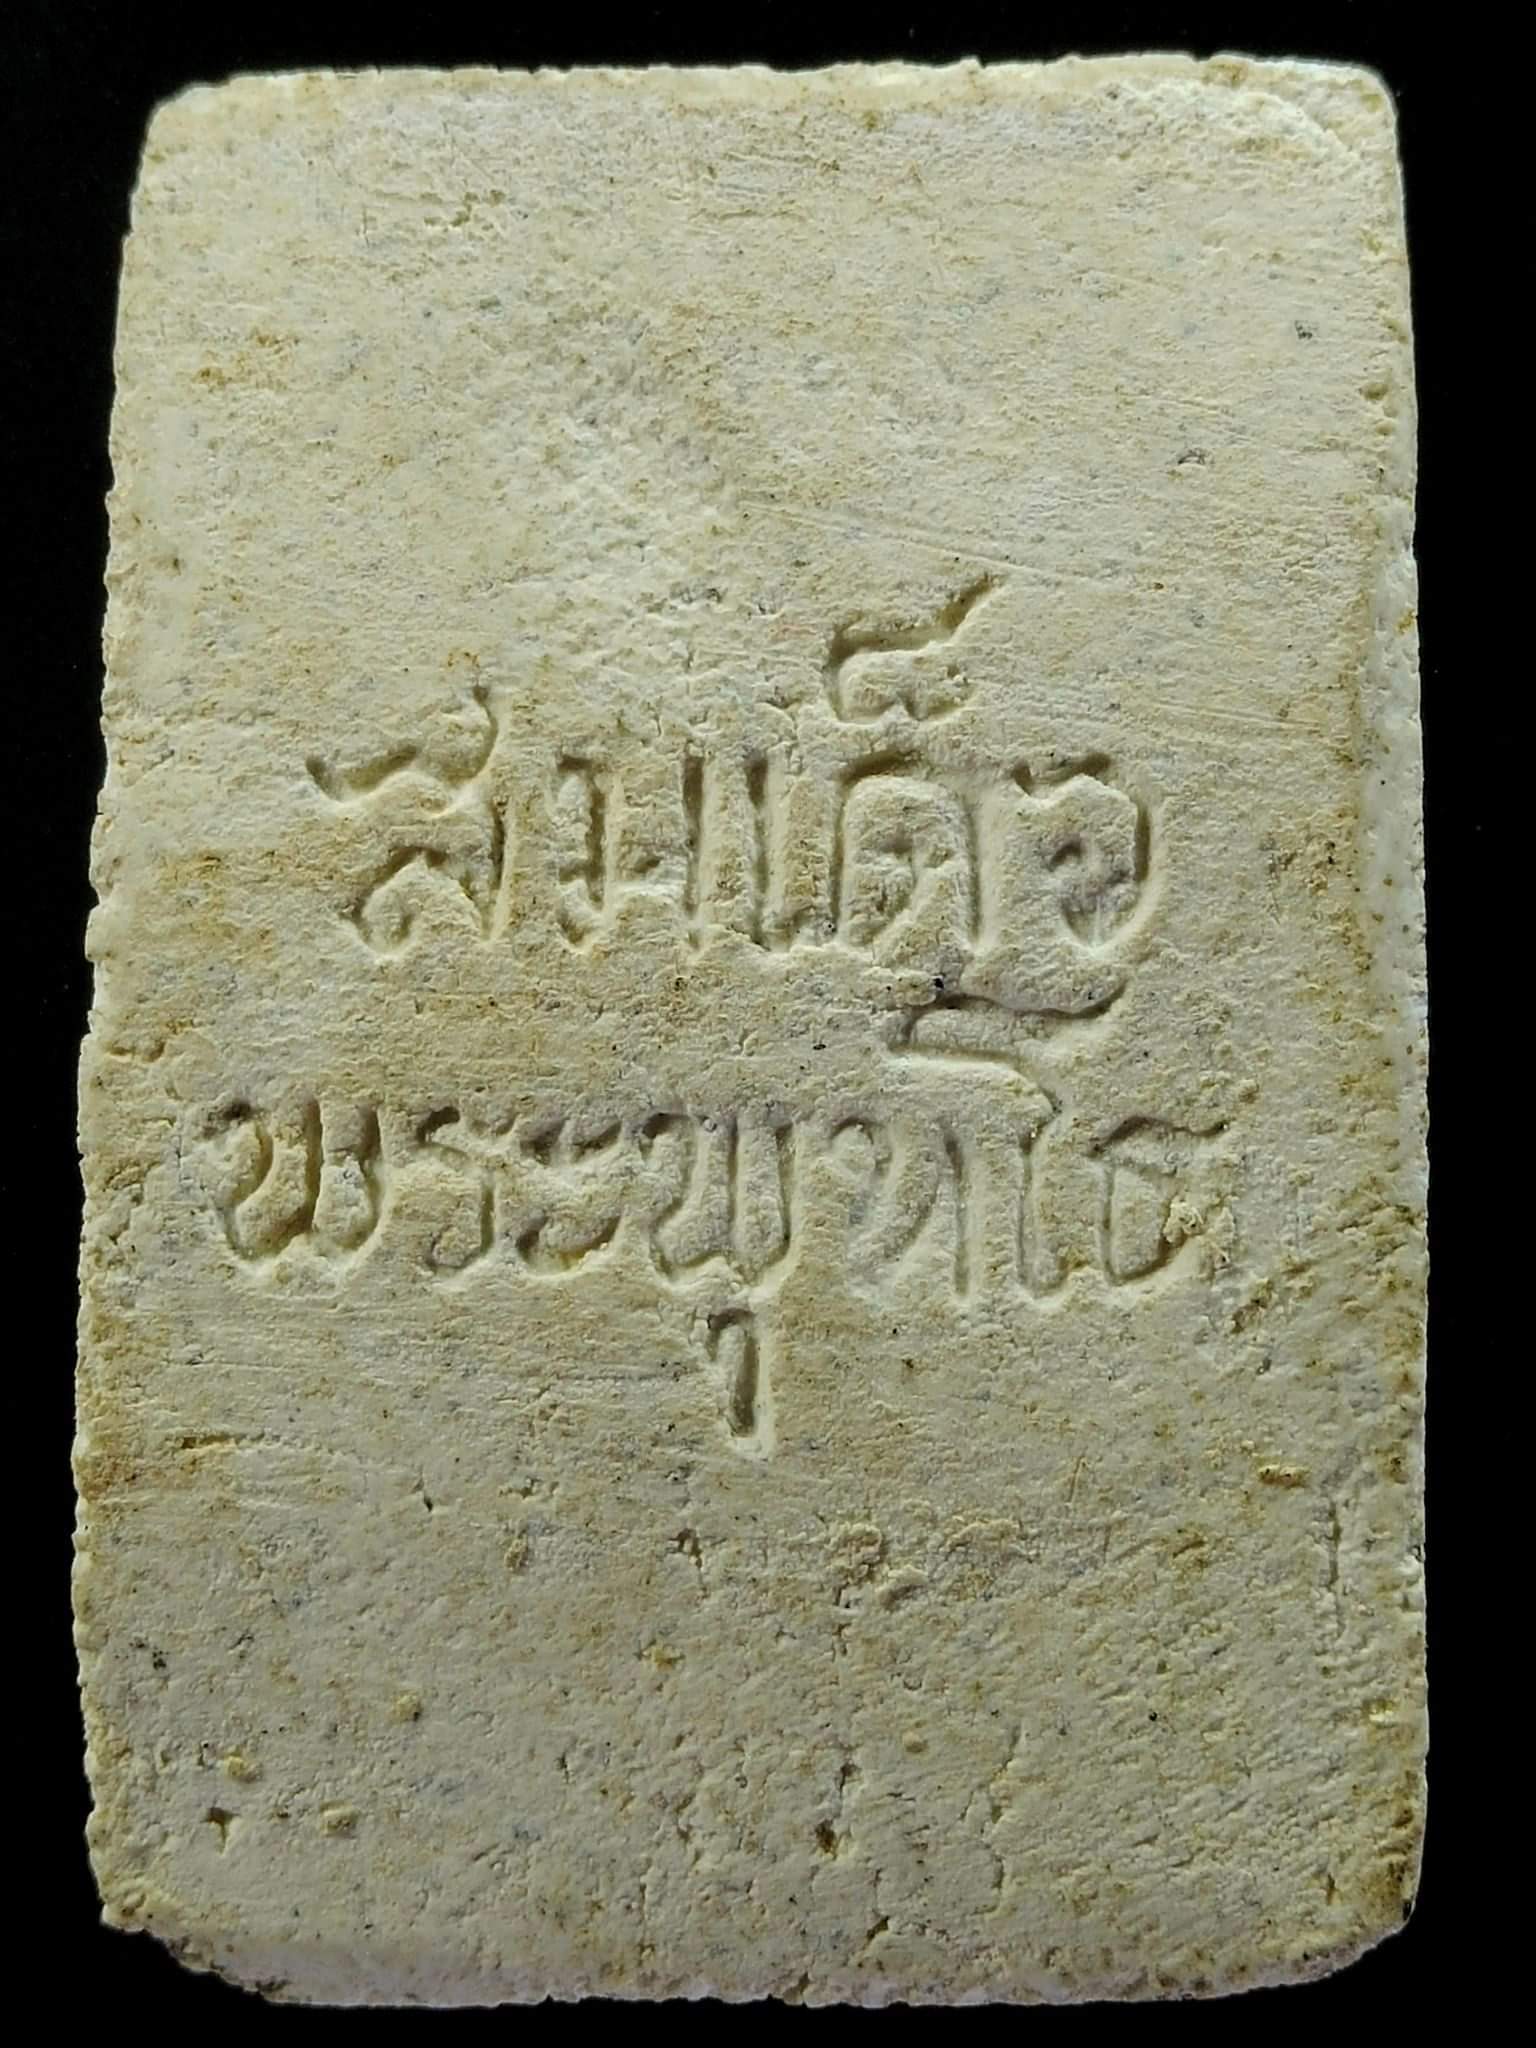 สมเด็จ
พระพุทโธ